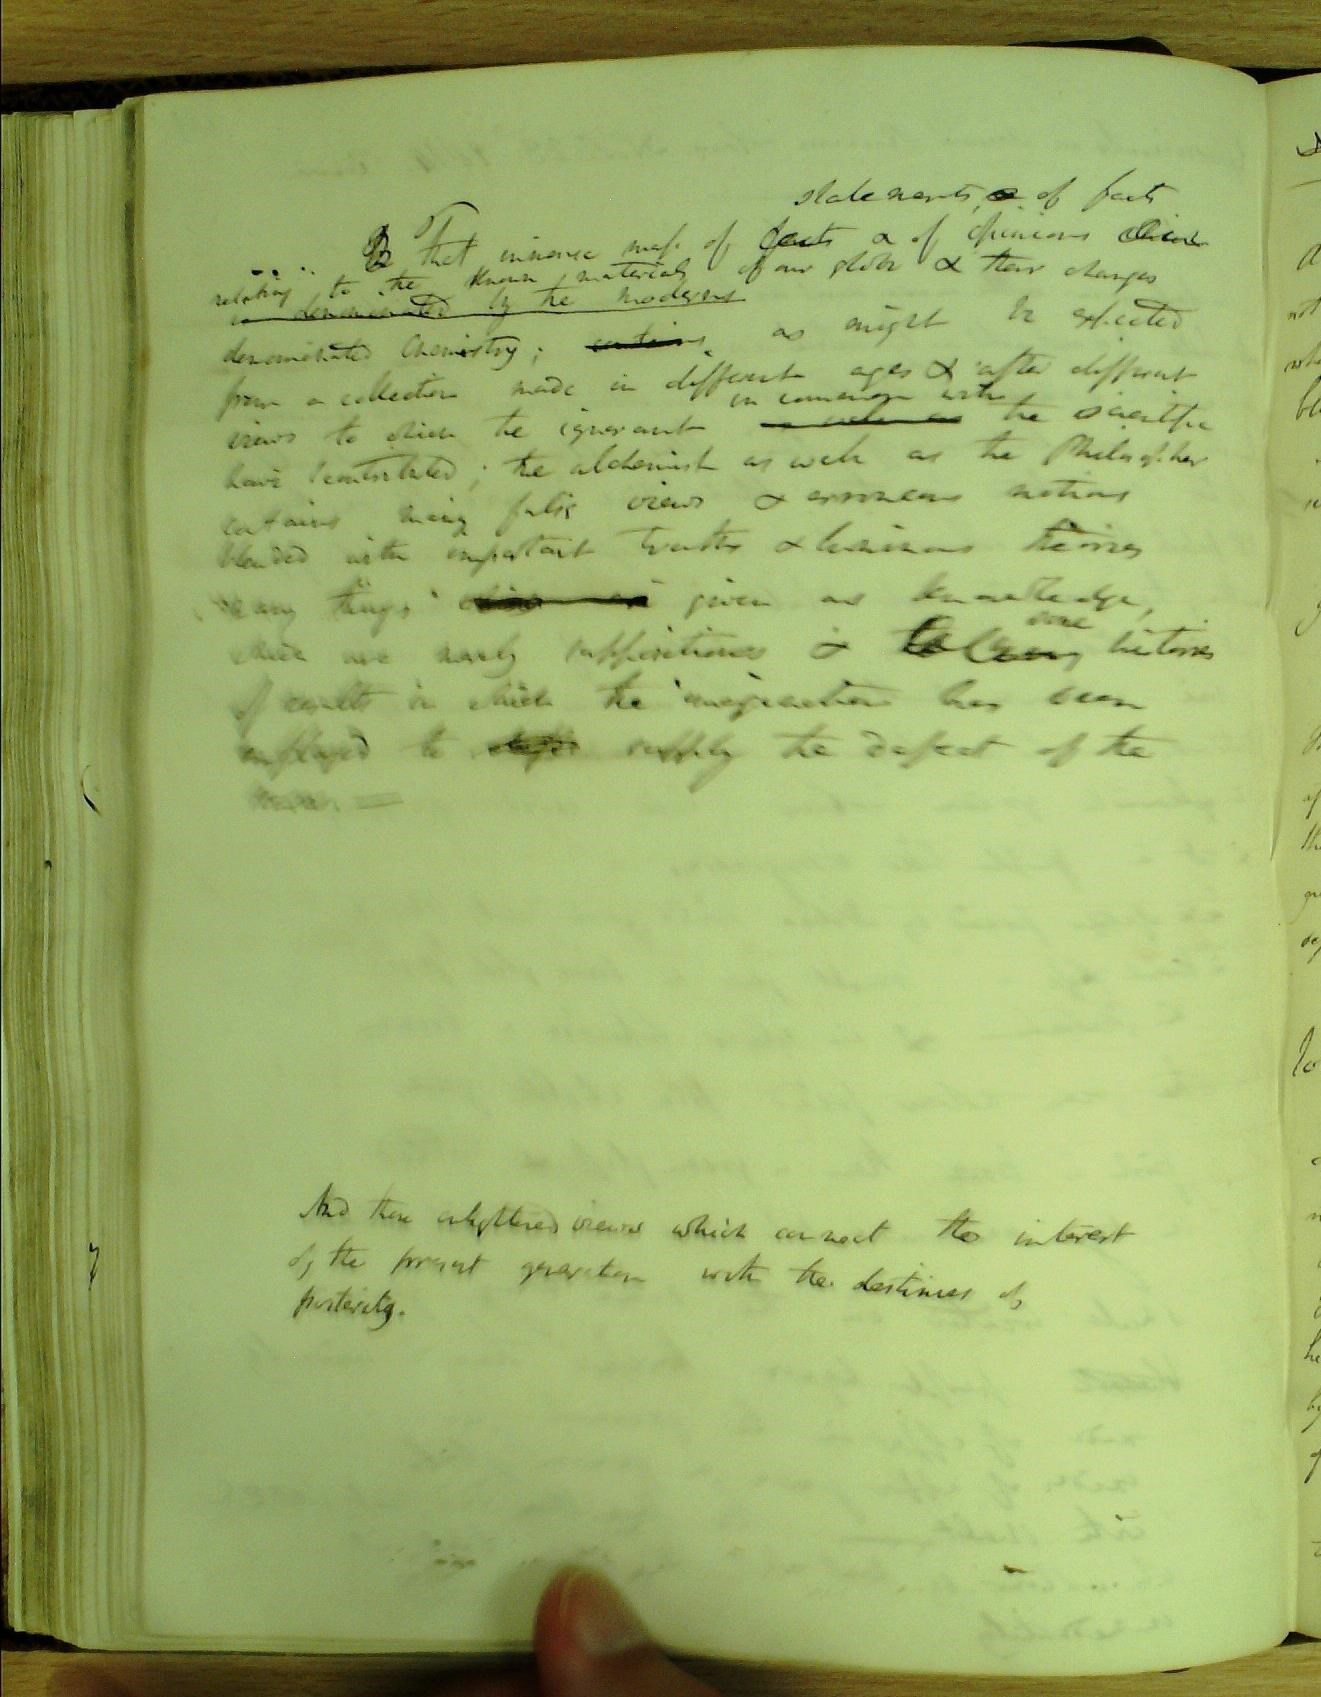 statements, of facts
That immense mass of facts & of opinions
relating to the known materials of our globe & their changes
is denominated by the moderns
denominated Chemistry; contains as might be expected
from a collection made in different ages & after different
in common with
views to which the ignorant as well as the scientific
have contributed; the alchemist as well as the Philosopher
contains many false views & erroneous notions
blended with important truths & luminous theories
many things given as knowledge,
which are merely suppositions &
some
histories
of results in which the imagination has been
employed to supply the defect of the
And those enlightened views which connect the interest
of the present generation with the destinies of
posterity.